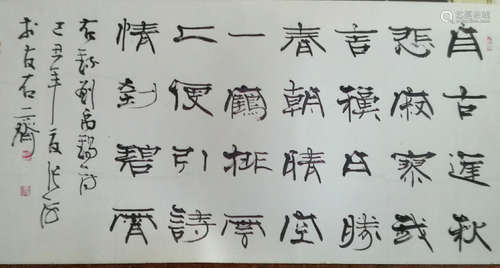 自古逢秋
悲寂寥我
言穐日勝
春朝晴空
一鶴排雲
上便引詩
情到碧霄
右錄劉禹錫詩
己丑年夏張
於友石齋